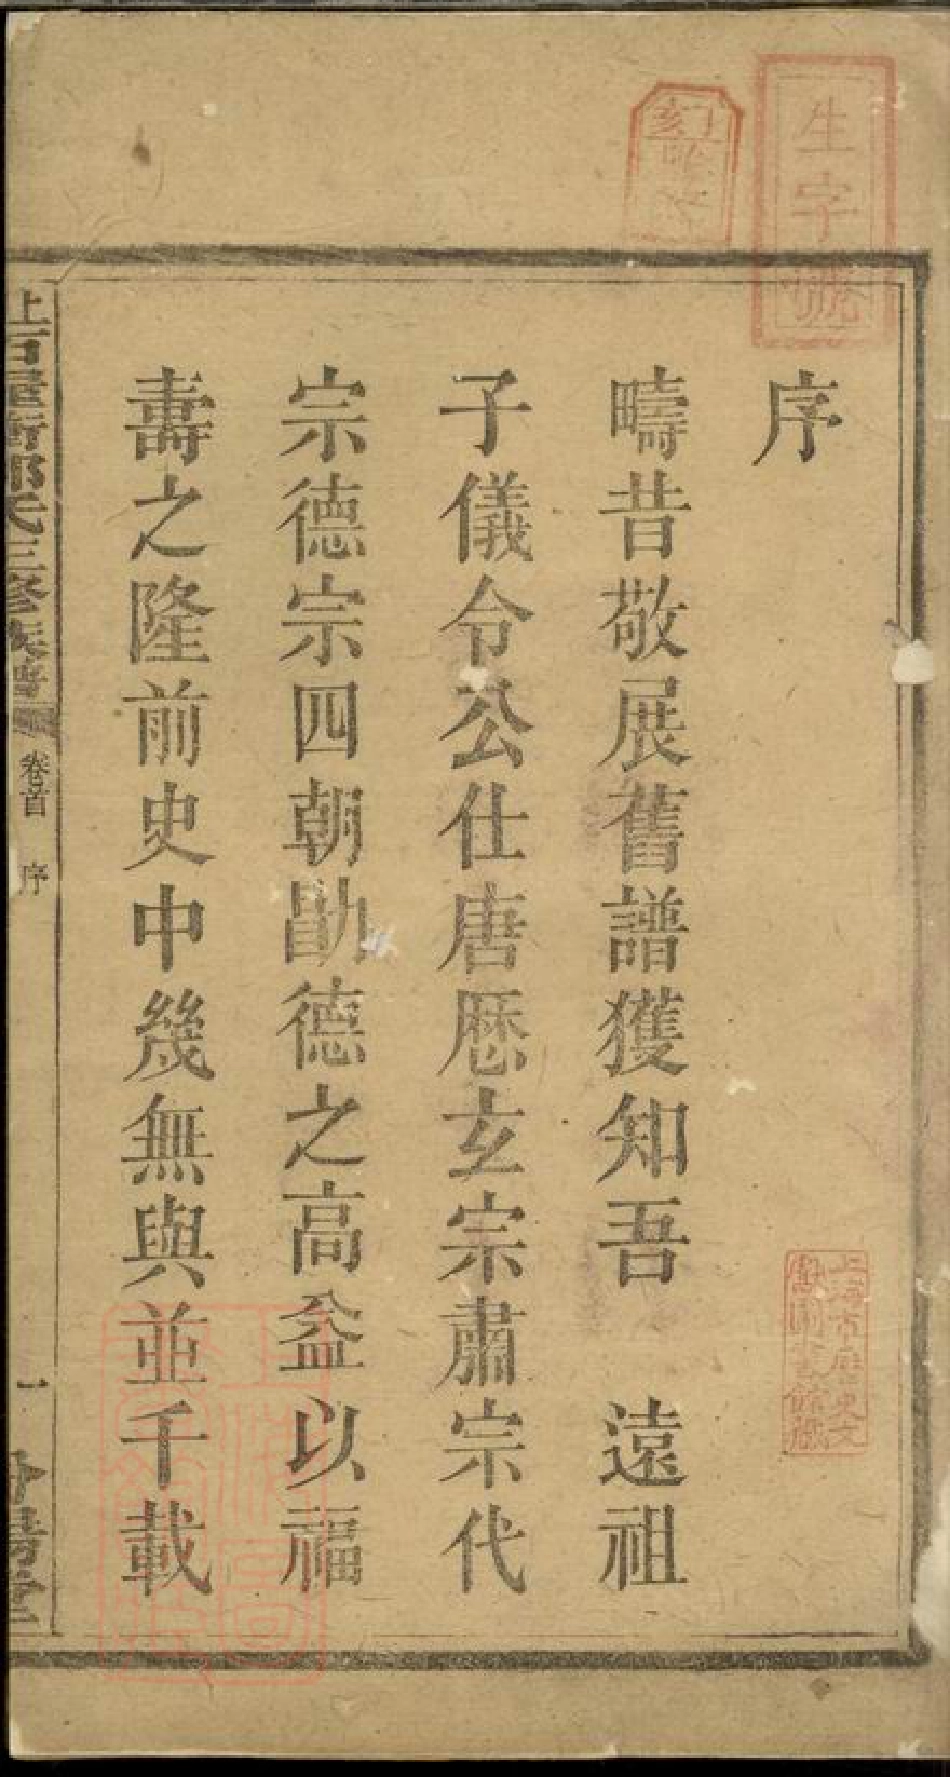 生字號
序
疇昔敬展舊譜獲知吾　遠祖
子儀令公仕唐歷玄宗肅宗代
宗德宗四朝勛德之高益以福
壽之隆前史中幾無與並千載
氏三修族譜
卷首
序
一
上海市歷史文
獻圖書館藏
上海圖
書館藏